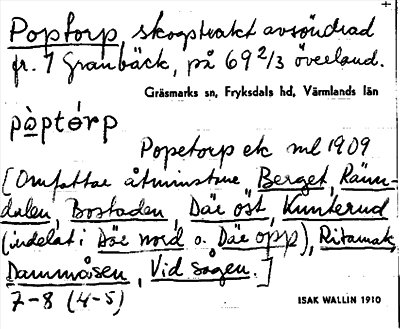 Poptorp, skogstrakt avsöndrad
fr. 1 Granbäck, på 69 2/3 öreland.
Gräsmarks sn, Fryksdals hd, Värmlands län
pòptórp
Popetorp etc ml 1909
[Omfattar åtminstone Berget, Ränn-
dalen, Bostaden, Däe öst, Kunterud
(indelat i Däe nord o. Däe opp), Ritamak,
Dammåsen, Vid sågen.]
7-8 (4-5)
ISAK WALLIN 1910